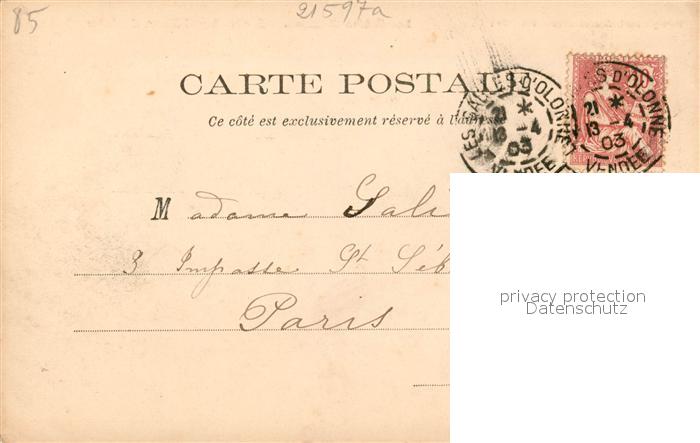 85
21597a
CARTE POSTALE
Ce côté est exclusivement réservé à l'adresse
LES SABLES D'OLONNE
21 *
13 4
03
VENDÉE
S D'OLONNE
21 *
13 4
03
VENDÉE
M adame Gali
3 Impasse St Séb
Paris
privacy protection
Datenschutz